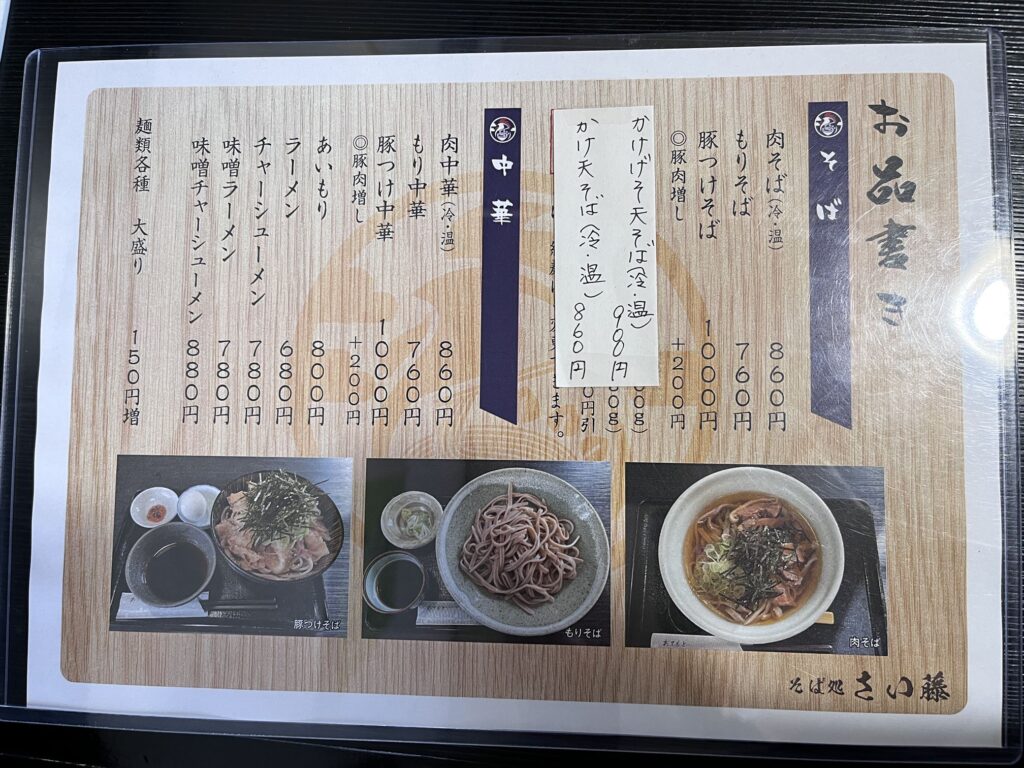 お品書き
そば
肉そば(冷・温) 860円
もりそば 760円
豚つけそば 1000円
◎豚肉増し +200円
かけげそ天そば(冷・温) 900円
かけ天そば(冷・温) 860円
00g)
00g)
0円引
ます。
中華
肉中華(冷・温) 860円
もり中華 760円
豚つけ中華 1000円
◎豚肉増し +200円
あいもり 800円
ラーメン 680円
チャーシューメン 780円
味噌ラーメン 780円
味噌チャーシューメン 880円
麺類各種 大盛り 150円増
肉そば
もりそば
豚つけそば
おてもと
そば処 さい藤